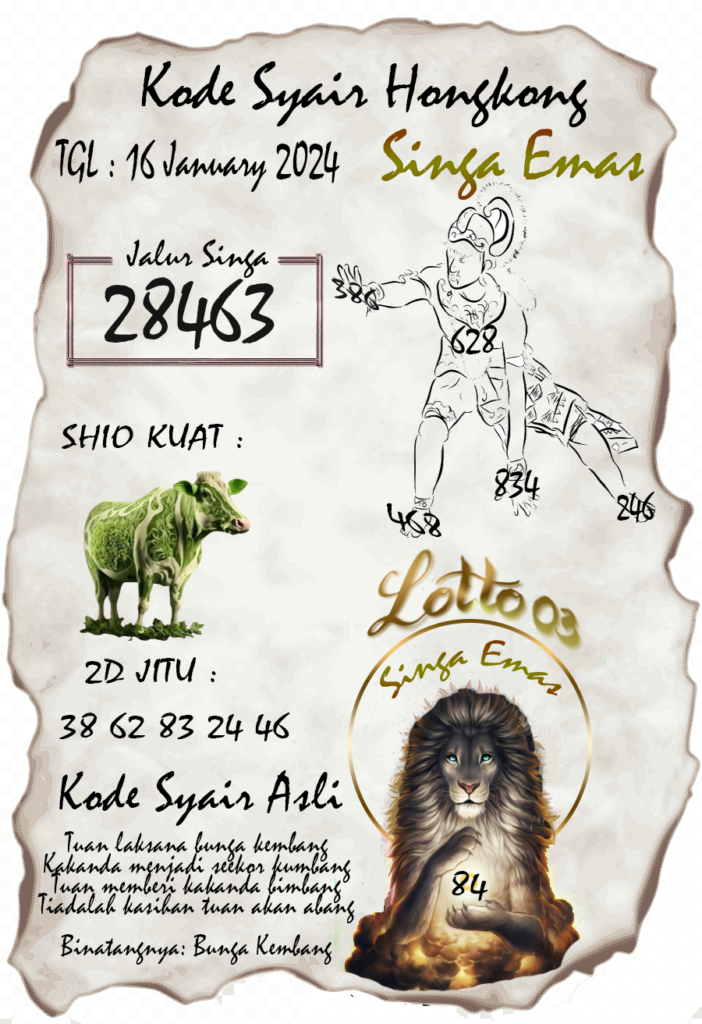 Kode Syair Hongkong
TGL : 16 January 2024
Singa Emas
Jalur Singa
28463
386
628
834
468
246
SHIO KUAT :
Lotto 03
Singa Emas
84
2D JITU :
38 62 83 24 46
Kode Syair Asli
Tuan laksana bunga kembang
Kakanda menjadi seekor kumbang
Tuan memberi kakanda bimbang
Tiadalah kasihan tuan akan abang
Binatangnya: Bunga Kembang